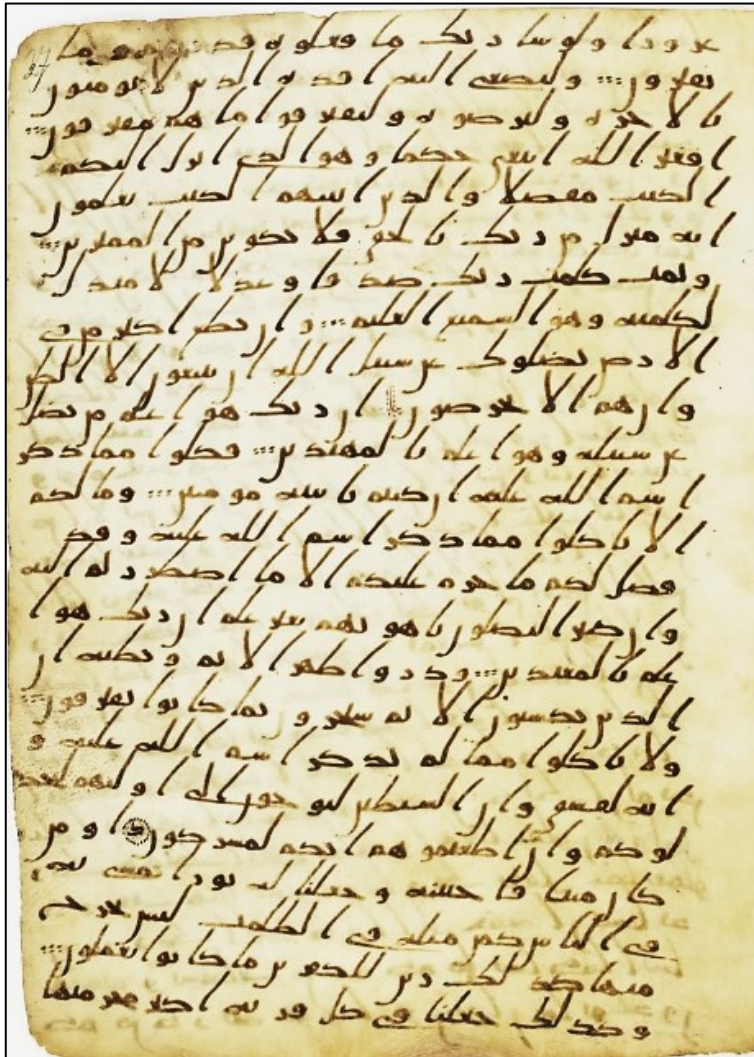 27
غرورا ولو شا ربك ما فعلوه فذرهم وما
يفترون ولتصغى اليه افدة الذين لا يومنون
بالاخرة وليرضوه وليقترفوا ما هم مقترفون
افغير الله ابتغي حكما وهو الذي انزل اليكم
الكتب مفصلا والذين اتينهم الكتب يعلمون
انه منزل من ربك بالحق فلا تكونن من الممترين
وتمت كلمت ربك صدقا وعدلا لا مبدل
لكلمته وهو السميع العليم وان تطع اكثر من في
الارض يضلوك عن سبيل الله ان يتبعون الا الظن
وان هم الا يخرصون ان ربك هو اعلم من يضل
عن سبيله وهو اعلم بالمهتدين فكلوا مما ذكر
اسم الله عليه ان كنتم بايته مومنين وما لكم
الا تاكلوا مما ذكر اسم الله عليه وقد
فصل لكم ما حرم عليكم الا ما اضطررتم اليه
وان كثيرا ليضلون باهويهم بغير علم ان ربك هو ا
علم بالمعتدين وذروا ظهر الاثم وبطنه ان
الذين يكسبون الاثم سيجزون بما كانوا يقترفون
ولا تاكلوا مما لم يذكر اسم الله عليه و
انه لفسق وان الشيطين ليوحون الى اوليهم ليجد
لوكم وان اطعتموهم انكم لمشركون او من
كان ميتا فاحيينه وجعلنا له نورا يمشي به
في الناس كمن مثله في الظلمت ليس بخرج
منها كذلك زين للكفرين ما كانوا يعملون
وكذلك جعلنا في كل قرية اكبر مجرميها